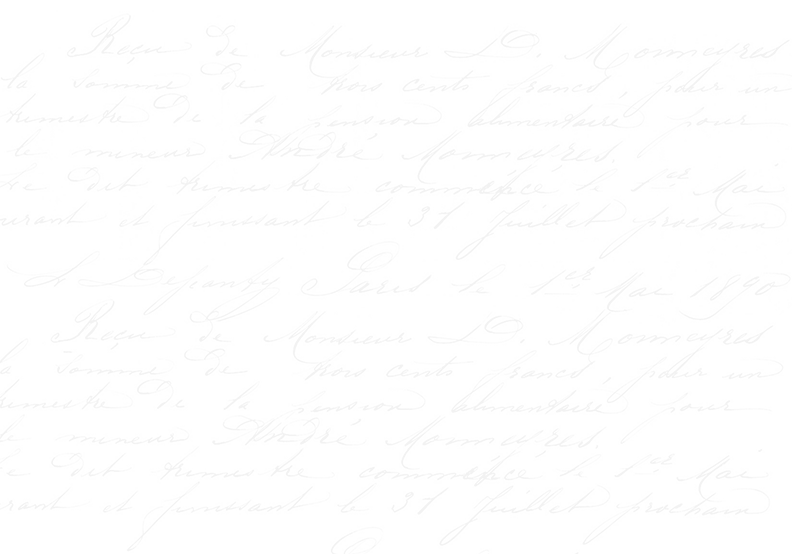 Reçu de Monsieur D. Monmayrés
la somme de trois cents francs, pour un
trimestre de la pension alimentaire pour
le mineur André Monmayrés.
Le dit trimestre commence le 1er Mai
courant et finissant le 31 Juillet prochain
Paris le 1er Mai 1890
Reçu de Monsieur D. Monmayrés
la somme de trois cents francs, pour un
trimestre de la pension alimentaire pour
le mineur André Monmayrés.
Le dit trimestre commence le 1er Mai
courant et finissant le 31 Juillet prochain